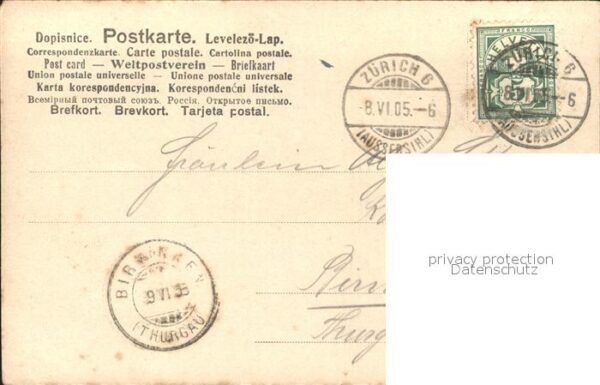 Dopisnice. Postkarte. Levelező-Lap.
Correspondenzkarte. Carte postale. Cartolina postale.
Post card — Weltpostverein — Briefkaart
Union postale universelle — Unione postale universale
Karta korespondencyjna. Korespondenční listek.
Всемірный почтовый союзъ. Россія. Открытое письмо.
Brefkort. Brevkort. Tarjeta postal.
ZÜRICH 6
-8.VI.05.-6
(AUSSERSIHL)
FRANCO
HELVETIA
ZÜRICH 6
-8.VI.05.-6
(AUSSERSIHL)
Fräulein
privacy protection
Datenschutz
BIRWINKEN
9.VI.05
(THURGAU)